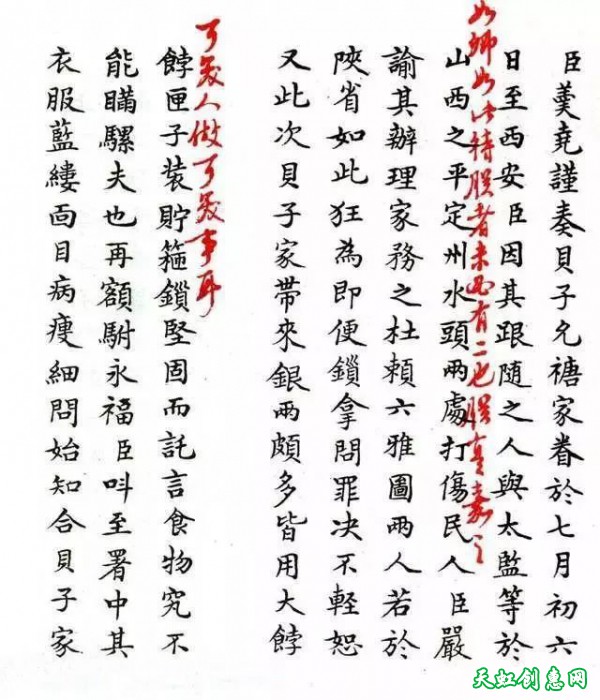 臣羮堯謹奏貝子允禟家眷於七月初六
日至西安臣因其跟隨之人與太監等於
如卿如此待朕者未必有二也朕實嘉之
山西之平定州水頭兩處打傷民人臣嚴
諭其辦理家務之杜賴六雅圖兩人若於
陜省如此狂為即便鎖拿問罪決不輕恕
又此次貝子家帶來銀兩頗多皆用大餑
可笑人做可笑事耳
餑匣子裝貯箍鎖堅固而託言食物究不
能瞞騾夫也再額駙永福臣呌至署中其
衣服藍縷面目病瘦細問始知合貝子家
天虹创意网